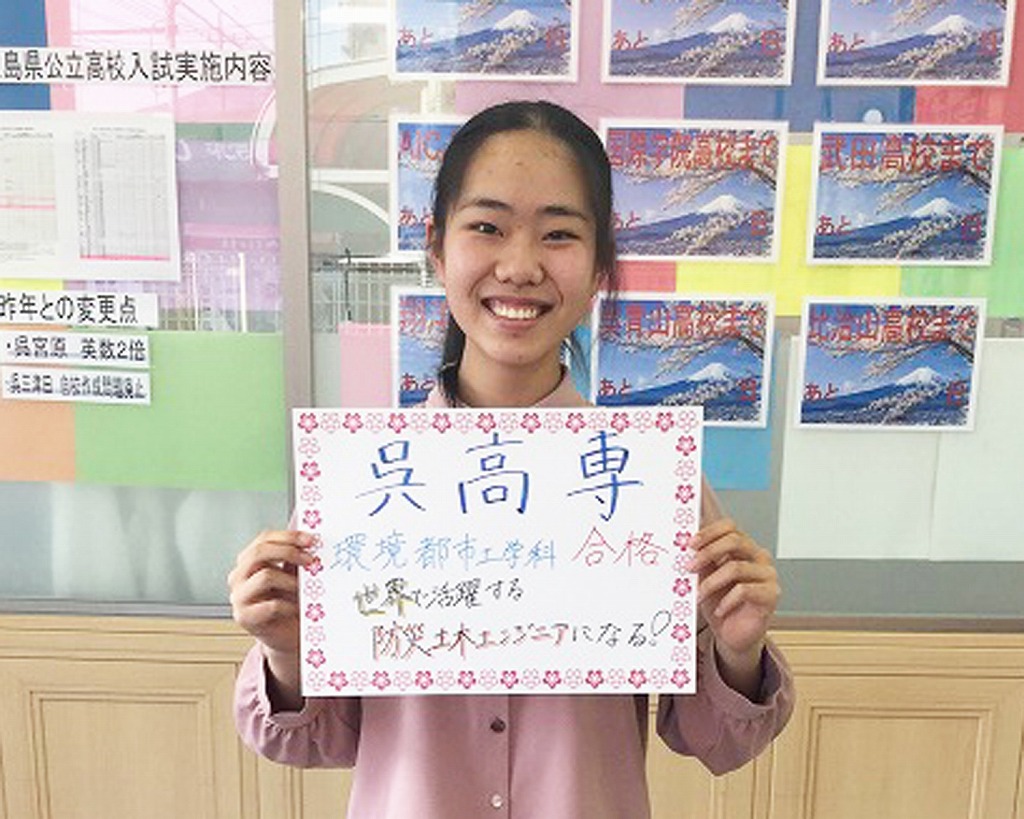 島県公立高校入試実施内容
昨年との変更点
・呉宮原 英数2倍
・呉三津田 自校作成問題廃止
あと 日
あと 日
あと 日
あと
国原学院高校まで
日
武田高校まで
あと 日
呉青山高校まで
あと 日
比治山高校まで
あと 日
呉高専
環境都市工学科 合格
世界で活躍する
防災土木エンジニアになる!